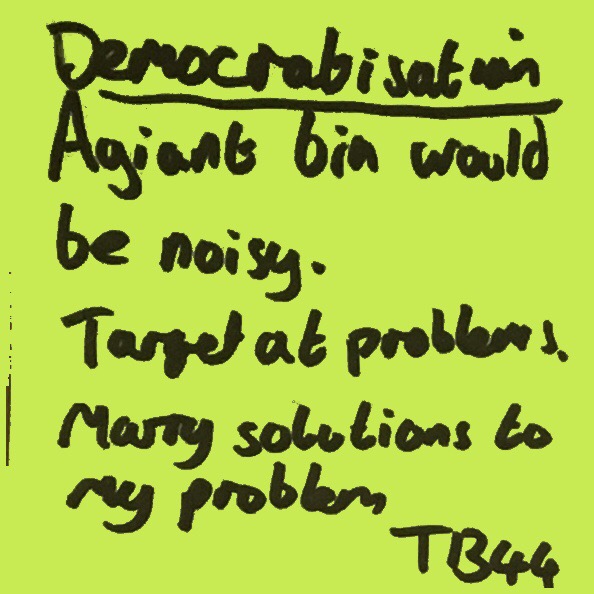 Democratisation
A giant bin would
be noisy.
Target at problems.
Marry solutions to
my problem
TB44